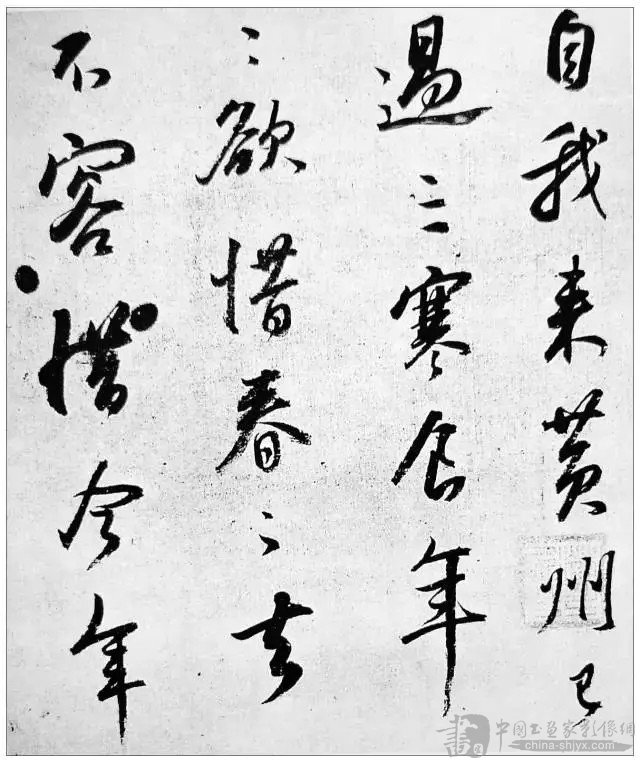 自我来黄州已
過三寒食年
〻欲惜春〻去
不容惜今年
書 中国书画家影像網
china-shjyx.com